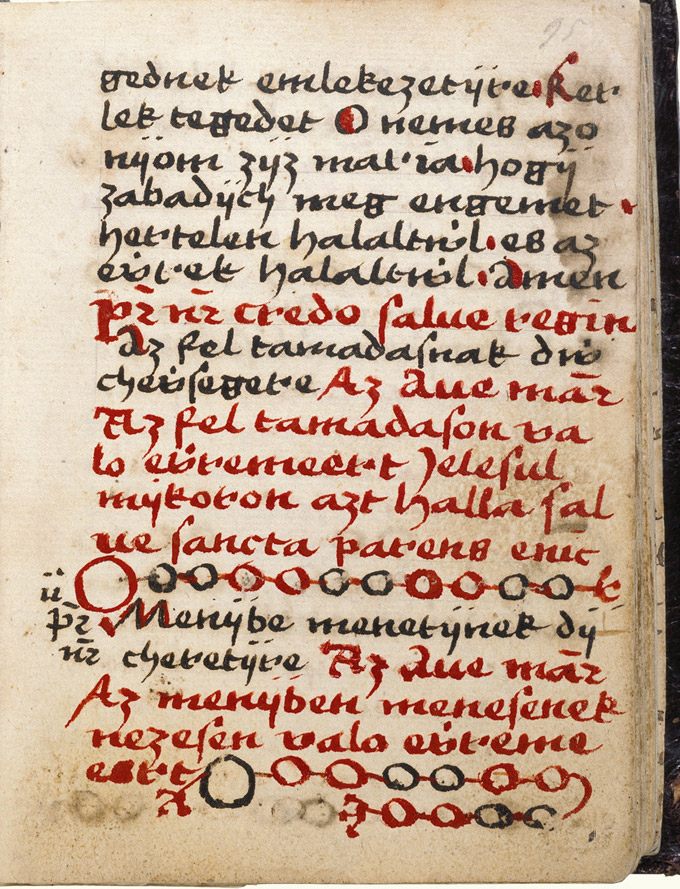 95
gednek emlekezetÿre Ker
lek tegedet O nemes azo
nÿom zÿz maria hogÿ
zabadÿcÿ meg engemet
hertelen halaltwl es az
ewrek halaltwl Amen
pr̄ nr̄ credo salue regin
Az fel tamadasnak dw
chewsegere Az Aue mār
Az fel tamadason va
lo ewremeert Jelesul
mÿkoron azt halla sal
ue sancta parens enīc
ÿ
pr̄ Menÿbe menetÿnek dÿ
nr̄ cheretÿre Az Aue mār
Az menÿben menesenek
nezesen valo ewreme
ert
A